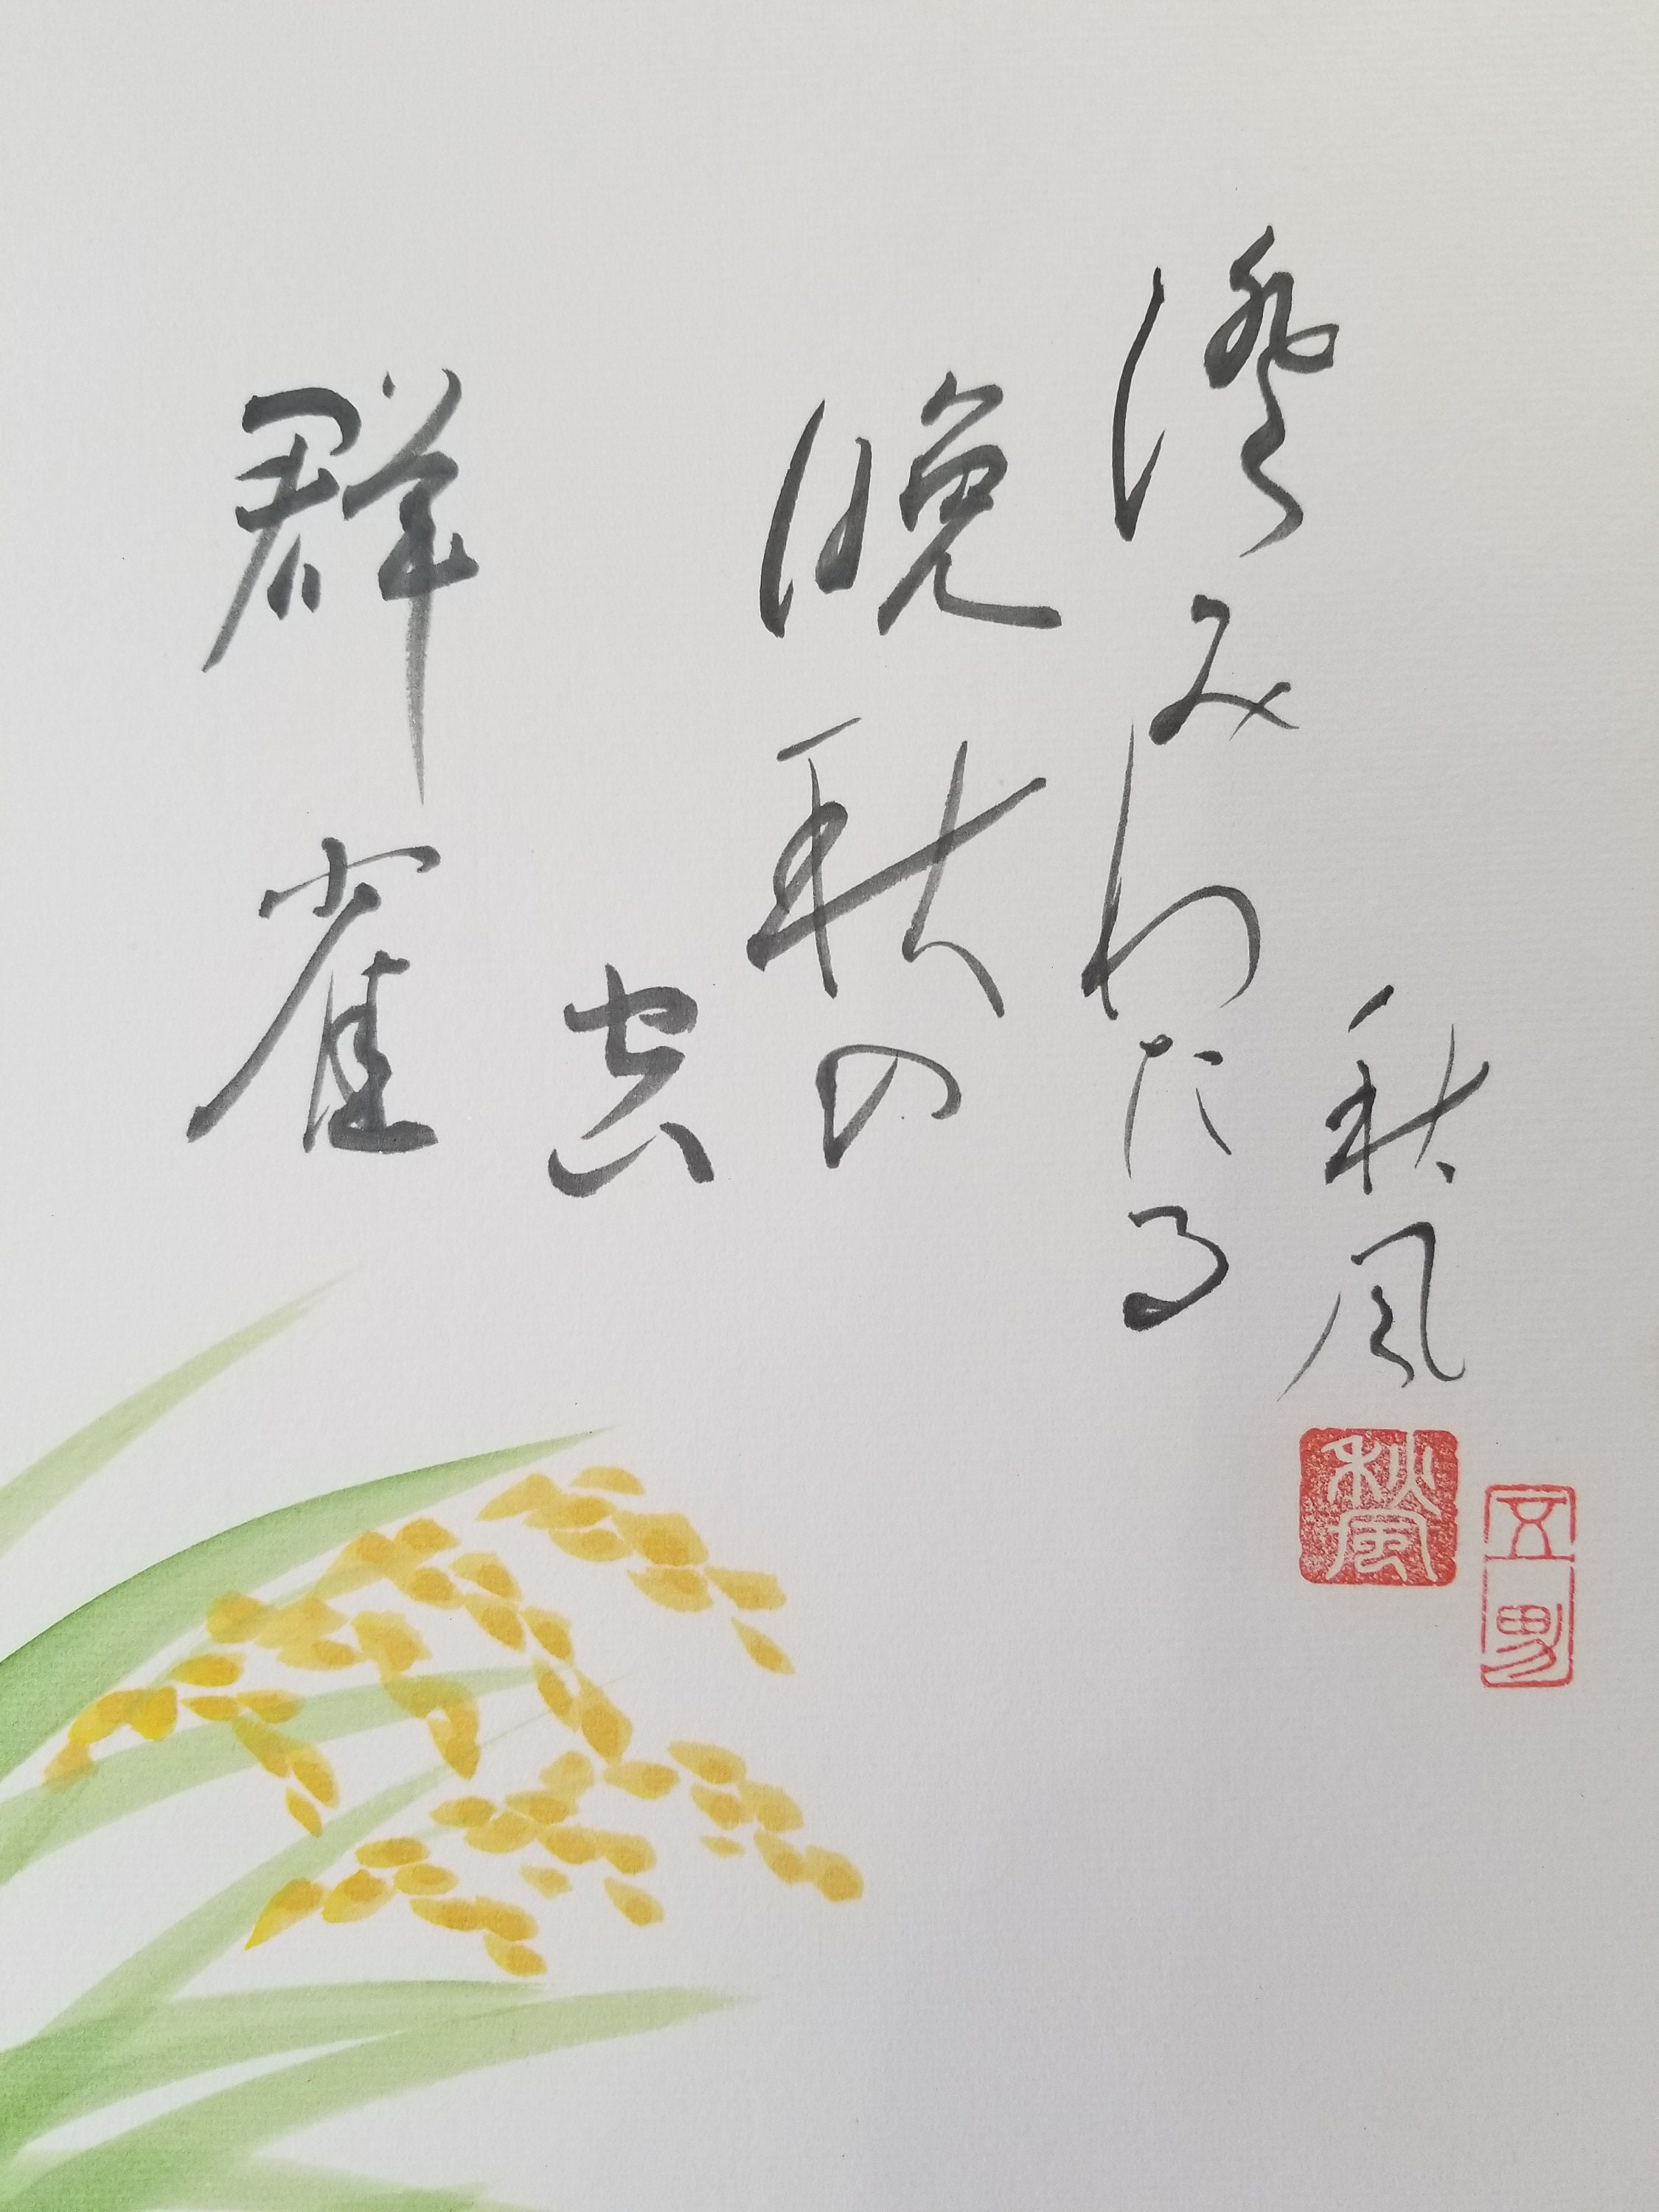 澄みわたる
晩秋の
空
群雀
秋風
秋風